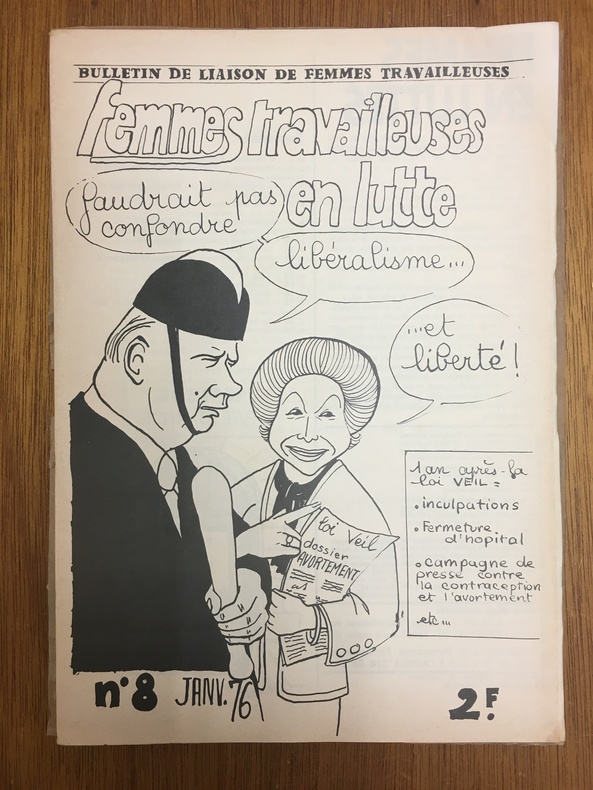 BULLETIN DE LIAISON DE FEMMES TRAVAILLEUSES
femmes travailleuses
en lutte
faudrait pas
confondre
libéralisme...
...et
liberté !
1 an après la
loi VEIL =
• inculpations
• Fermeture
d'hopital
• campagne de
presse contre
la contraception
et l'avortement
etc...
loi Veil
dossier
AVORTEMENT
n°8 JANV. 76
2F.